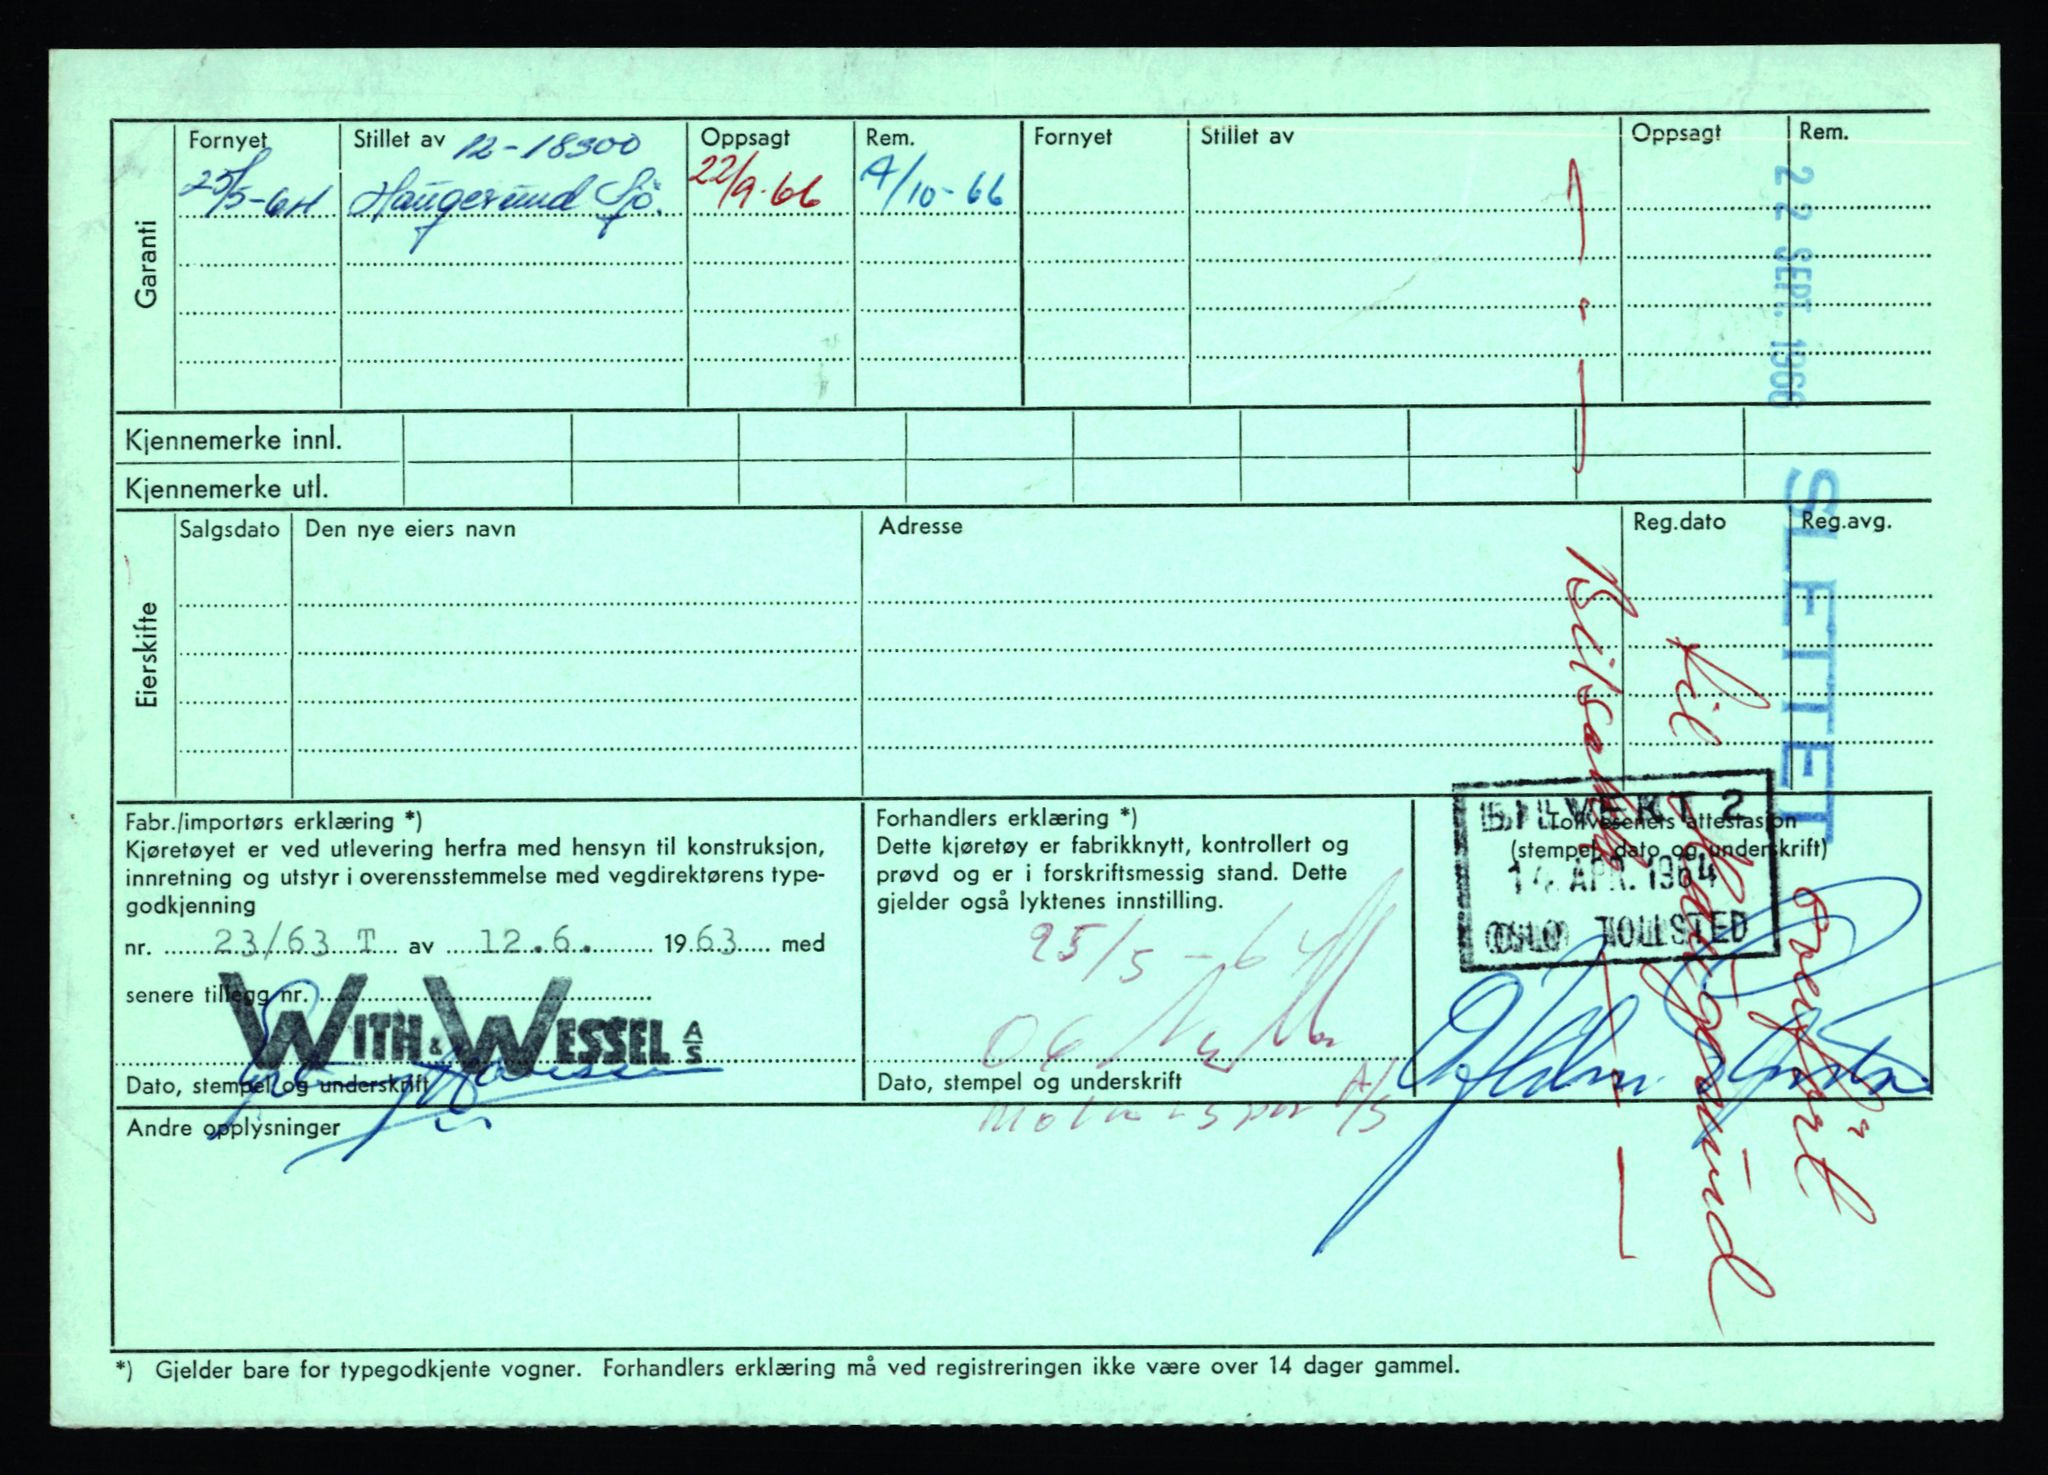 Garanti
Fornyet Stillet av 12-18300 Oppsagt Rem. Fornyet Stillet av Oppsagt Rem.
25/5-64 Haugesund Sjö. 22/9-66 4/10-66
22 SEPT. 1966
Kjennemerke innl.
Kjennemerke utl.
SLETTET
Eierskifte
Salgsdato Den nye eiers navn Adresse Reg.dato Reg.avg.
Fabr./importørs erklæring *)
Kjøretøyet er ved utlevering herfra med hensyn til konstruksjon,
innretning og utstyr i overensstemmelse med vegdirektørens type-
godkjenning
nr. 23/63 T av 12.6. 1963 med
senere tillegg nr.
WITH & WESSEL A/S
Dato, stempel og underskrift
Forhandlers erklæring *)
Dette kjøretøy er fabrikknytt, kontrollert og
prøvd og er i forskriftsmessig stand. Dette
gjelder også lyktenes innstilling.
25/5-64
A/S
Dato, stempel og underskrift
Tollvesenets attestasjon
(stempel, dato og underskrift)
BILVEKT 2
14. APR. 1964
OSLO TOLLSTED
overfört
til Haugesund
Bilsakk.
Andre opplysninger
*) Gjelder bare for typegodkjente vogner. Forhandlers erklæring må ved registreringen ikke være over 14 dager gammel.